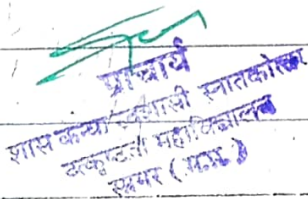 प्राचार्य
शास कन्या स्वशासी स्नातकोत्तर
उत्कृष्टता महाविद्यालय
सागर (म.प्र.)